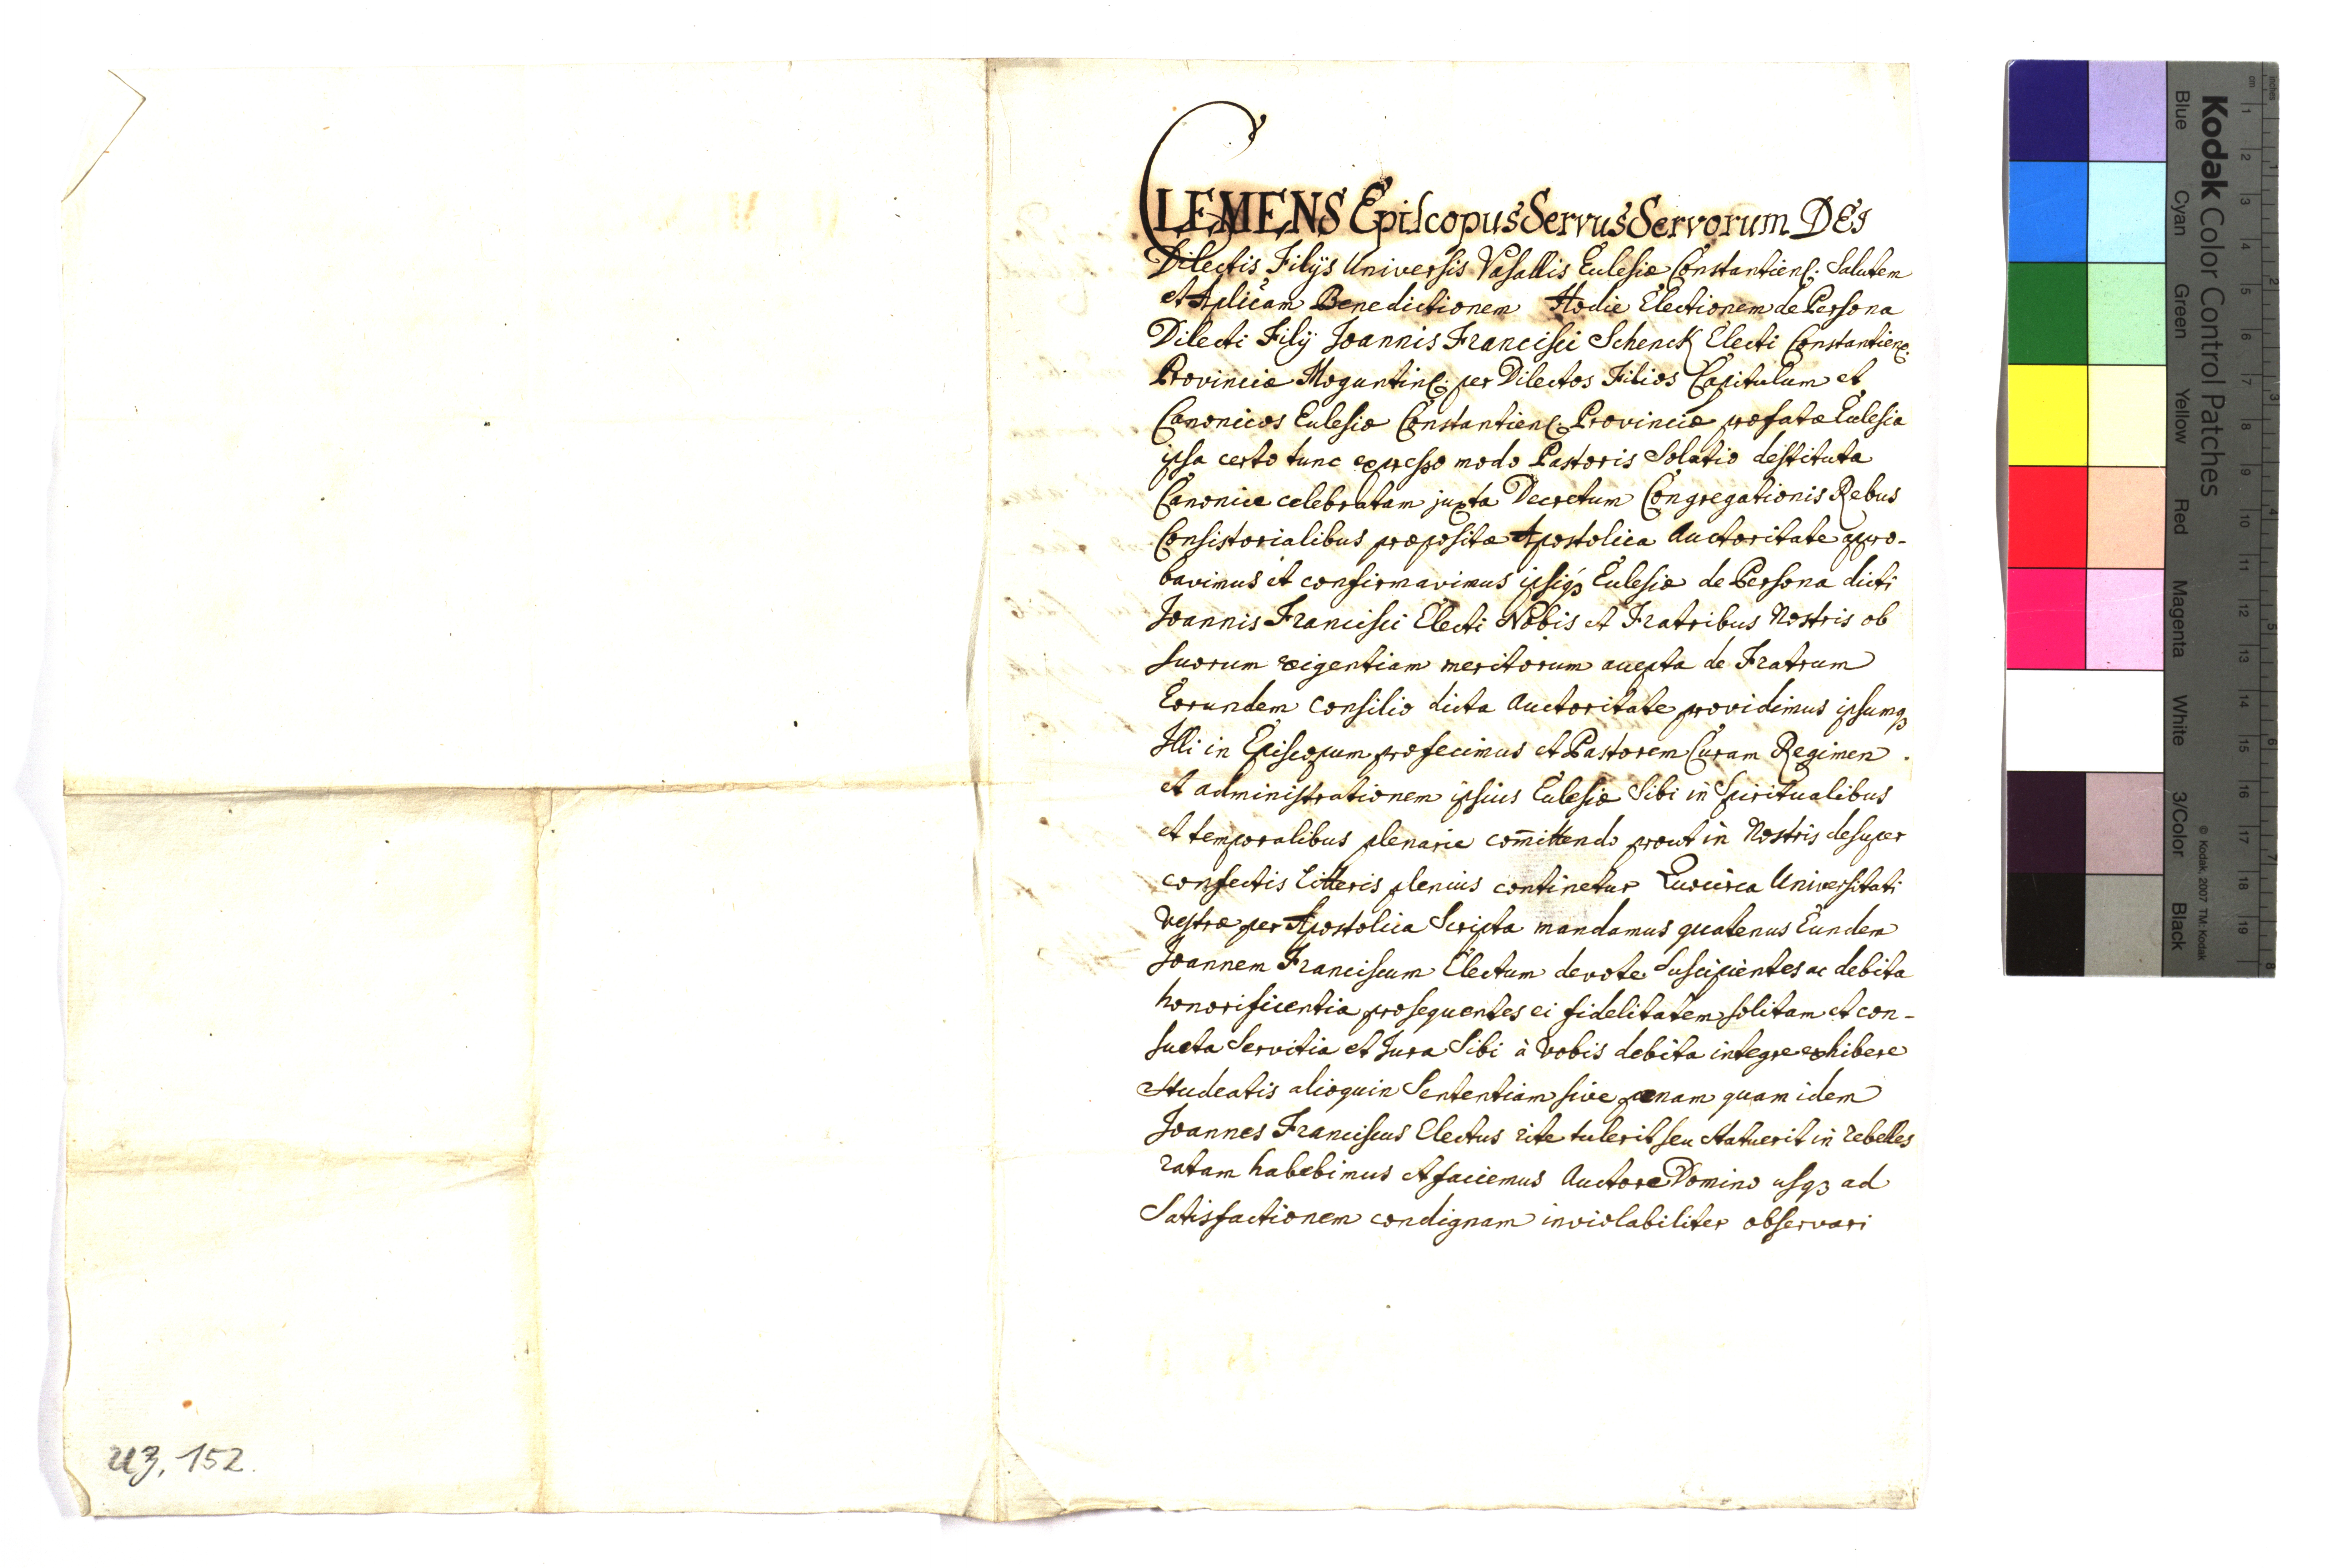 CLEMENS Episcopus Servus Servorum DEI
Dilectis Filijs Universis Vasallis Ecclesiæ Constantien̄. Salutem
et Aplicam Benedictionem Hodie Electionem de Persona
Dilecti Filij Joannis Francisci Schenck Electi Constantien̄.
Provinciæ Moguntin̄. per Dilectos Filios Capitulum et
Canonicos Ecclesiæ Constantien̄. Provinciæ præfatæ Ecclesia
ipsa certo tunc expresso modo Pastoris Solatio destituta
Canonice celebratam juxta Decretum Congregationis Rebus
Consistorialibus præpositæ Apostolica Auctoritate appro-
bavimus et confirmavimus ipsiq3 Ecclesiæ de Persona dicti
Joannis Francisci Electi Nobis et Fratribus Nostris ob
suorum exigentiam meritorum accepta de Fratrum
Eorundem consilio dicta Auctoritate providimus ipsumq3
Illi in Episcopum præfecimus et Pastorem Curam Regimen
et administrationem ipsius Ecclesiæ Sibi in Spiritualibus
et temporalibus plenarie com̄ittendo prout in Nostris desuper
confectis Litteris plenius continetur Quocirca Universitati
Vestræ per Apostolica Scripta mandamus quatenus Eundem
Joannem Franciscum Electum devote Suscipientes ac debita
honorificentia prosequentes ei fidelitatem solitam et con-
sueta Servitia et Jura Sibi à Vobis debita integre exhibere
Studeatis alioquin Sententiam sive pœnam quam idem
Joannes Franciscus Electus rite tulerit seu Statuerit in rebelles
ratam habebimus et faciemus Auctore Domino usq3 ad
Satisfactionem condignam inviolabiliter observari
U3, 152.
Kodak Color Control Patches
© Kodak, 2007 TM: Kodak
Blue Cyan Green Yellow Red Magenta White 3/Color Black
cm 1 2 3 4 5 6 7 8 9 10 11 12 13 14 15 16 17 18 19
inches 1 2 3 4 5 6 7 8